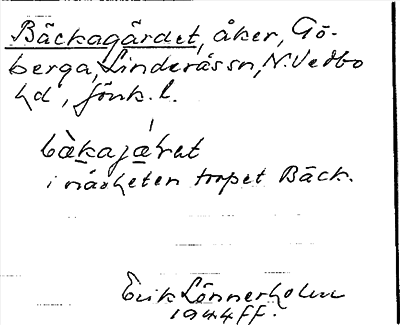 Bäckagärdet, åker, Gö-
berga, Linderås sn, N. Vedbo
hd, Jönk. l.
bækajæret
i närheten torpet Bäck.
Erik Lönnerholm
1944 ff.